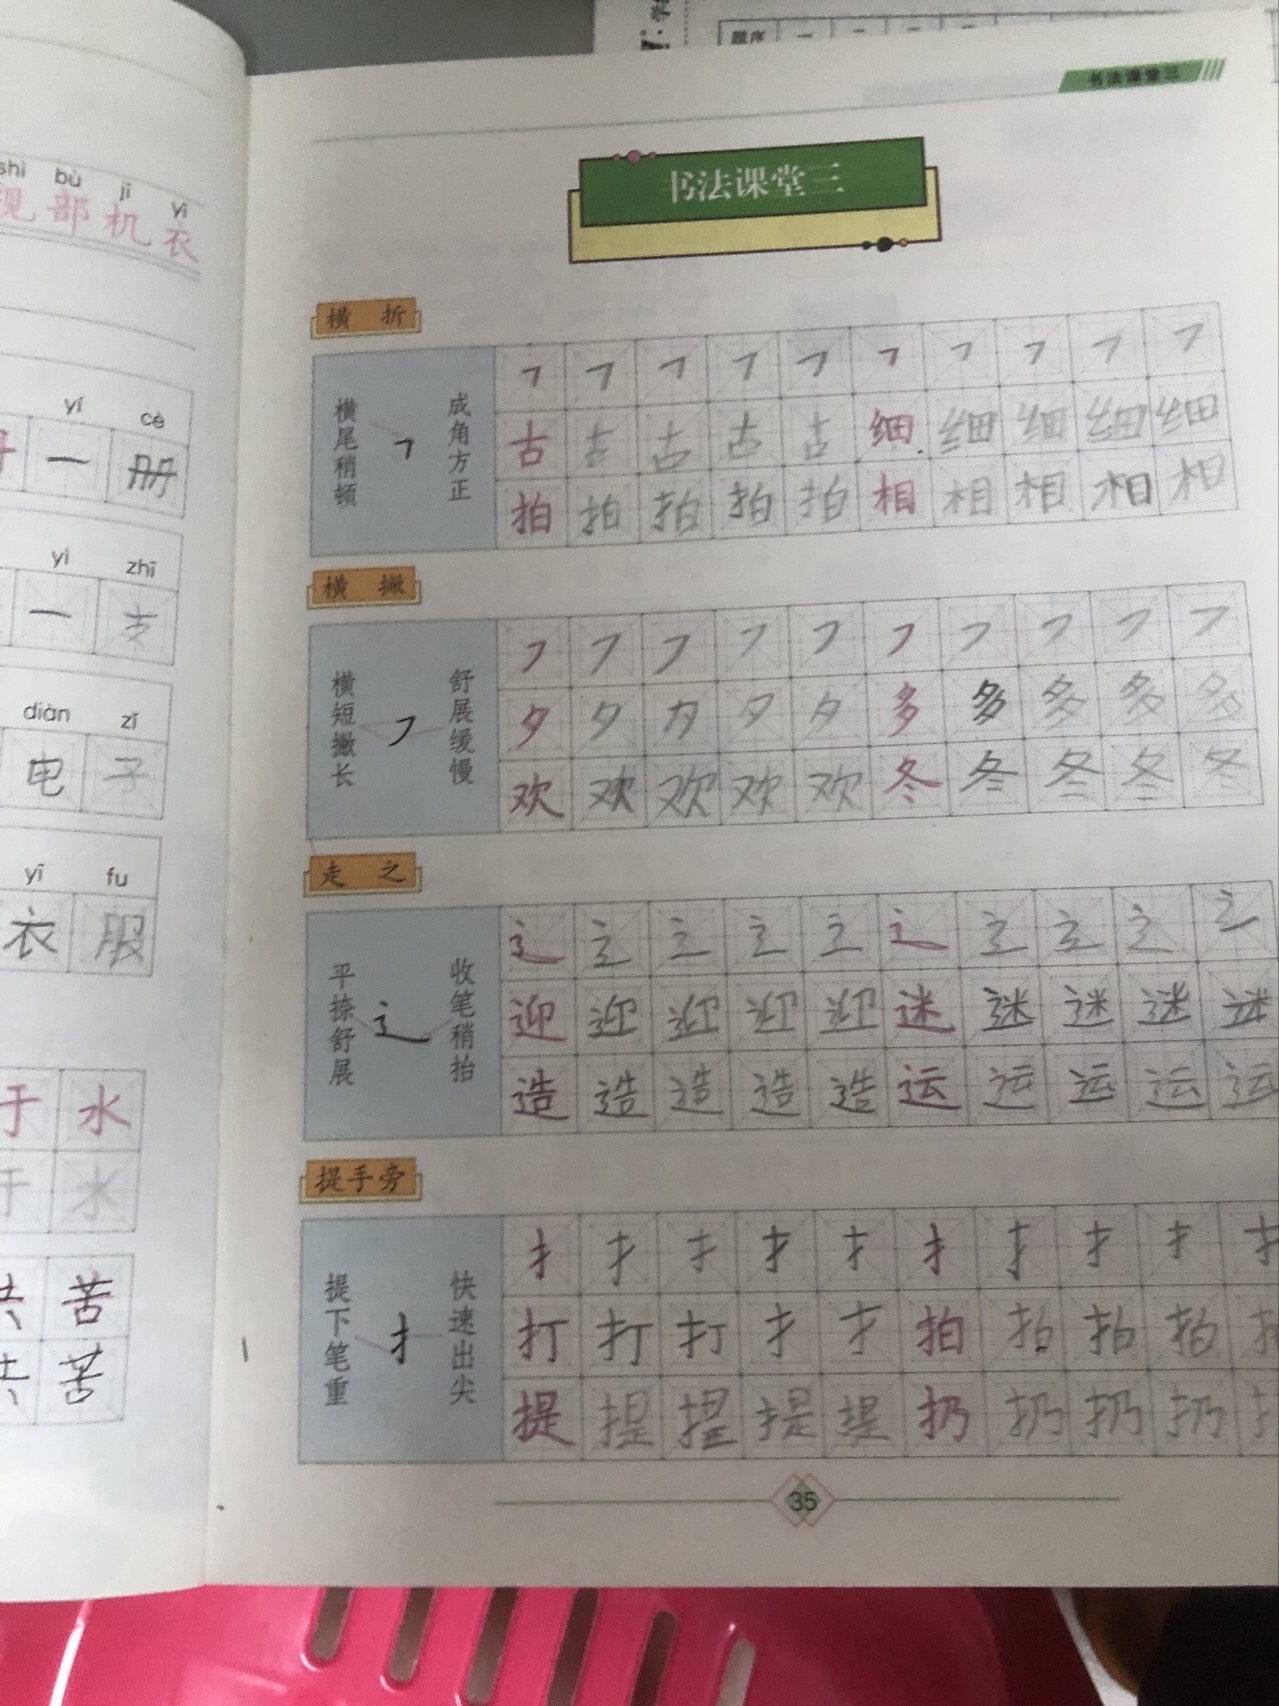 题序 一 二
书法课堂三
书法课堂三
shì bù jī yī
视 部 机 衣
yí cè
一 册
yì zhī
一 支
diàn zǐ
电 子
yī fu
衣 服
于 水
于 水
共 苦
共 苦
横 折
横尾稍顿
㇕
成角方正
㇕ ㇕ ㇕ ㇕ ㇕ ㇕ ㇕ ㇕ ㇕ ㇕
古 古 古 古 古 细 细 细 细 细
拍 拍 拍 拍 拍 相 相 相 相 相
横 撇
横短撇长
㇇
舒展缓慢
㇇ ㇇ ㇇ ㇇ ㇇ ㇇ ㇇ ㇇ ㇇ ㇇
夕 夕 夕 夕 夕 多 多 多 多 多
欢 欢 欢 欢 欢 冬 冬 冬 冬 冬
走 之
平捺舒展
辶
收笔稍抬
辶 辶 辶 辶 辶 辶 辶 辶 辶 辶
迎 迎 迎 迎 迎 迷 迷 迷 迷 迷
造 造 造 造 造 运 运 运 运 运
提手旁
提下笔重
扌
快速出尖
扌 扌 扌 扌 扌 扌 扌 扌 扌 扌
打 打 打 扌 扌 拍 拍 拍 拍
提 提 提 提 提 扔 扔 扔 扔
35